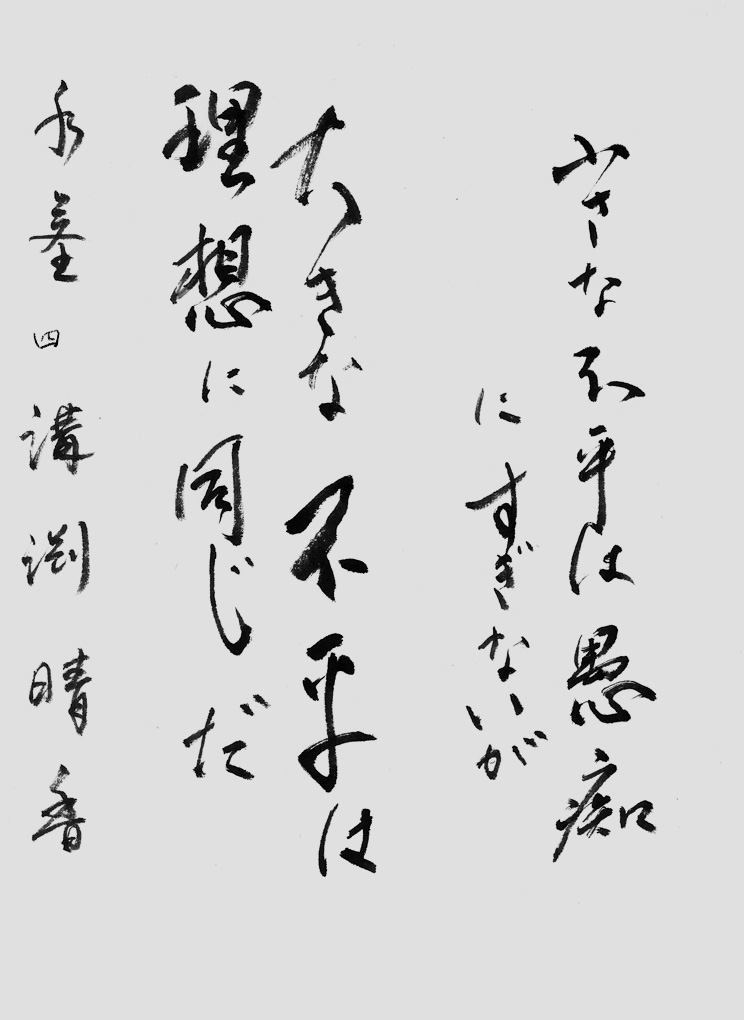 小さな不平は愚痴
にすぎないが
大きな不平は
理想に同じだ
四 講 渕 晴香